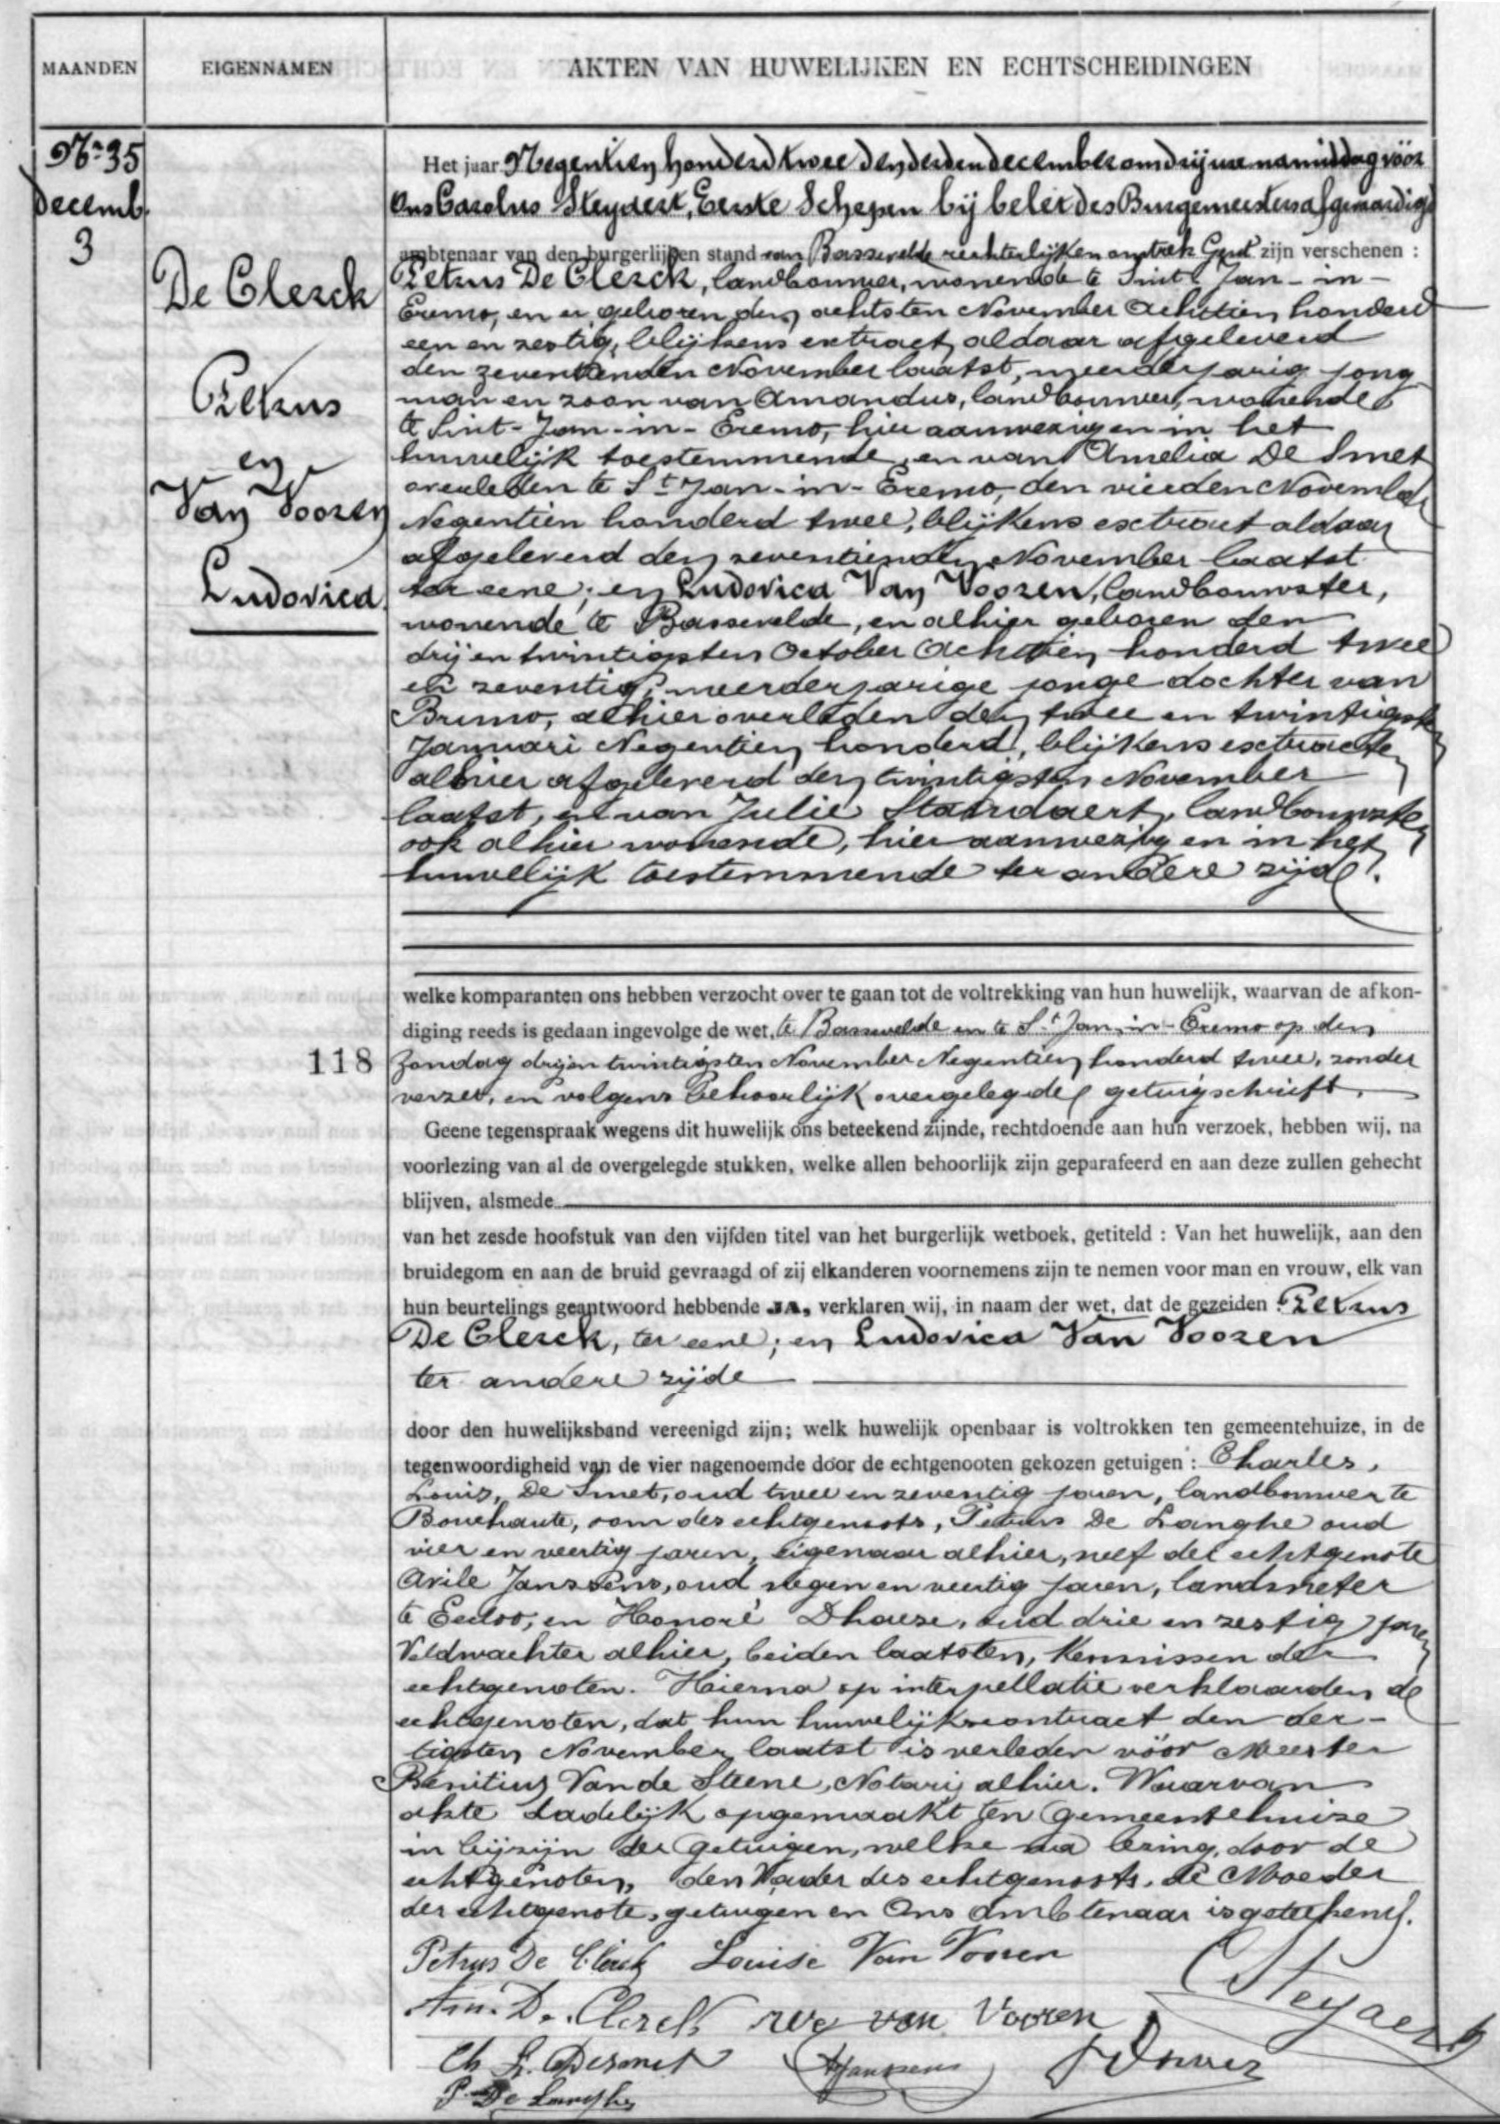 MAANDEN
EIGENNAMEN
AKTEN VAN HUWELIJKEN EN ECHTSCHEIDINGEN
Nr 35
decemb.
3
De Clerck
Petrus
en
Van Vooren
Ludovica
Het jaar Negentien honderd twee den derden december om drij ure namiddag vóór
Ons Carolus Steyaert, Eerste Schepen bij belet des Burgemeesters afgevaardigd
ambtenaar van den burgerlijken stand van Bassevelde rechterlijken omtrek Gent zijn verschenen :
Petrus De Clerck, landbouwer, wonende te Sint-Jan-in-
Eremo, en er geboren den achtsten November Achttien honderd
een en zestig, blijkens extract aldaar afgeleverd
den zeventienden November laatst, meerderjarig jong
man en zoon van Amandus, landbouwer, wonende
te Sint-Jan-in-Eremo, hier aanwezig en in het
huwelijk toestemmende, en van Amelia De Smet
overleden te St Jan-in-Eremo, den vierden November
Negentien honderd twee, blijkens extract aldaar
afgeleverd den zeventienden November laatst
ter eene; en Ludovica Van Vooren, landbouwster,
wonende te Bassevelde, en alhier geboren den
drij en twintigsten October Achttien honderd twee
en zeventig, meerderjarige jonge dochter van
Bruno, alhier overleden den twee en twintigsten
Januari Negentien honderd, blijkens extracte
alhier afgeleverd den twintigsten November
laatst, en van Julie Standaert, landbouwster
ook alhier wonende, hier aanwezig en in het
huwelijk toestemmende ter andere zijde.
welke komparanten ons hebben verzocht over te gaan tot de voltrekking van hun huwelijk, waarvan de afkon-
diging reeds is gedaan ingevolge de wet, te Bassevelde en te St Jan-in-Eremo op den
118
Zondag drij en twintigsten November Negentien honderd twee, zonder
verzet, en volgens behoorlijk overgelegde getuigschrift.
Geene tegenspraak wegens dit huwelijk ons beteekend zijnde, rechtdoende aan hun verzoek, hebben wij, na
voorlezing van al de overgelegde stukken, welke allen behoorlijk zijn geparafeerd en aan deze zullen gehecht
blijven, alsmede
van het zesde hoofstuk van den vijfden titel van het burgerlijk wetboek, getiteld : Van het huwelijk, aan den
bruidegom en aan de bruid gevraagd of zij elkanderen voornemens zijn te nemen voor man en vrouw, elk van
hun beurtelings geantwoord hebbende JA, verklaren wij, in naam der wet, dat de gezeiden : Petrus
De Clerck, ter eene; en Ludovica Van Vooren
ter andere zijde
door den huwelijksband vereenigd zijn; welk huwelijk openbaar is voltrokken ten gemeentehuize, in de
tegenwoordigheid van de vier nagenoemde door de echtgenooten gekozen getuigen : Charles,
Louis, De Smet, oud twee en zeventig jaren, landbouwer te
Bouchaute, oom des echtgenoots, Petrus De Langhe oud
vier en veertig jaren, eigenaar alhier, neef der echtgenote
Avile Janssens, oud negen en veertig jaren, landmeter
te Eecloo, en Honoré Dhaese, oud drie en zestig jaren
Veldwachter alhier, beiden laatsten, kennissen der
echtgenoten. Hierna op interpellatie verklaarden de
echtgenoten, dat hun huwelijkscontract den der-
tigsten November laatst is verleden vóór Meester
Benitius Van de Steene, Notaris alhier. Waarvan
akte dadelijk opgemaakt ten Gemeentehuize
in bijzijn der Getuigen, welke na lezing, door de
echtgenoten, den Vader des echtgenoots, de Moeder
der echtgenote, getuigen en Ons Ambtenaar is geteekend.
Petrus De Clerck Louise Van Vooren
Am. De Clerck wve van Vooren Steyaert
Ch L. Desmet AJanssens
P. De Langhe